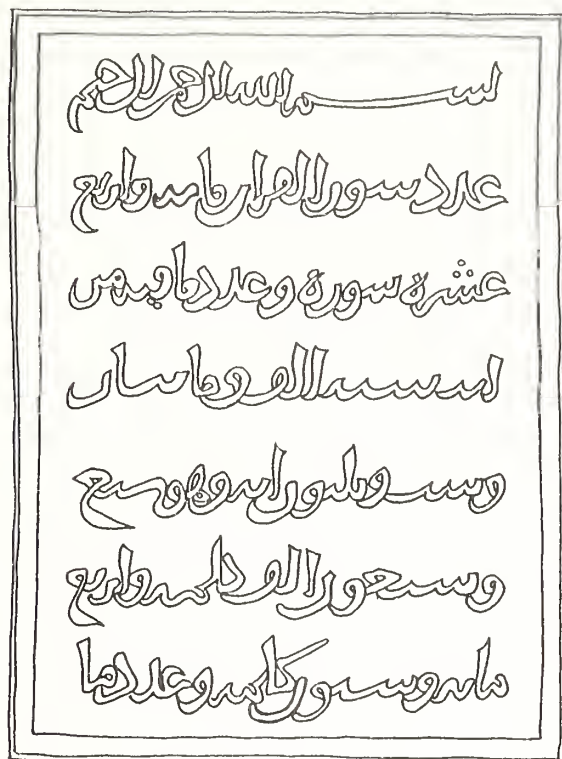 بسم الله الرحمن الرحيم
عدد سور القران مايه واربع
عشرة سورة وعدد ما فيه من
ايه سته الف ومايتان
وست وثلثون ايه
وسبعون الف كلمه واربع
مايه وستون كلمه وعدد ما